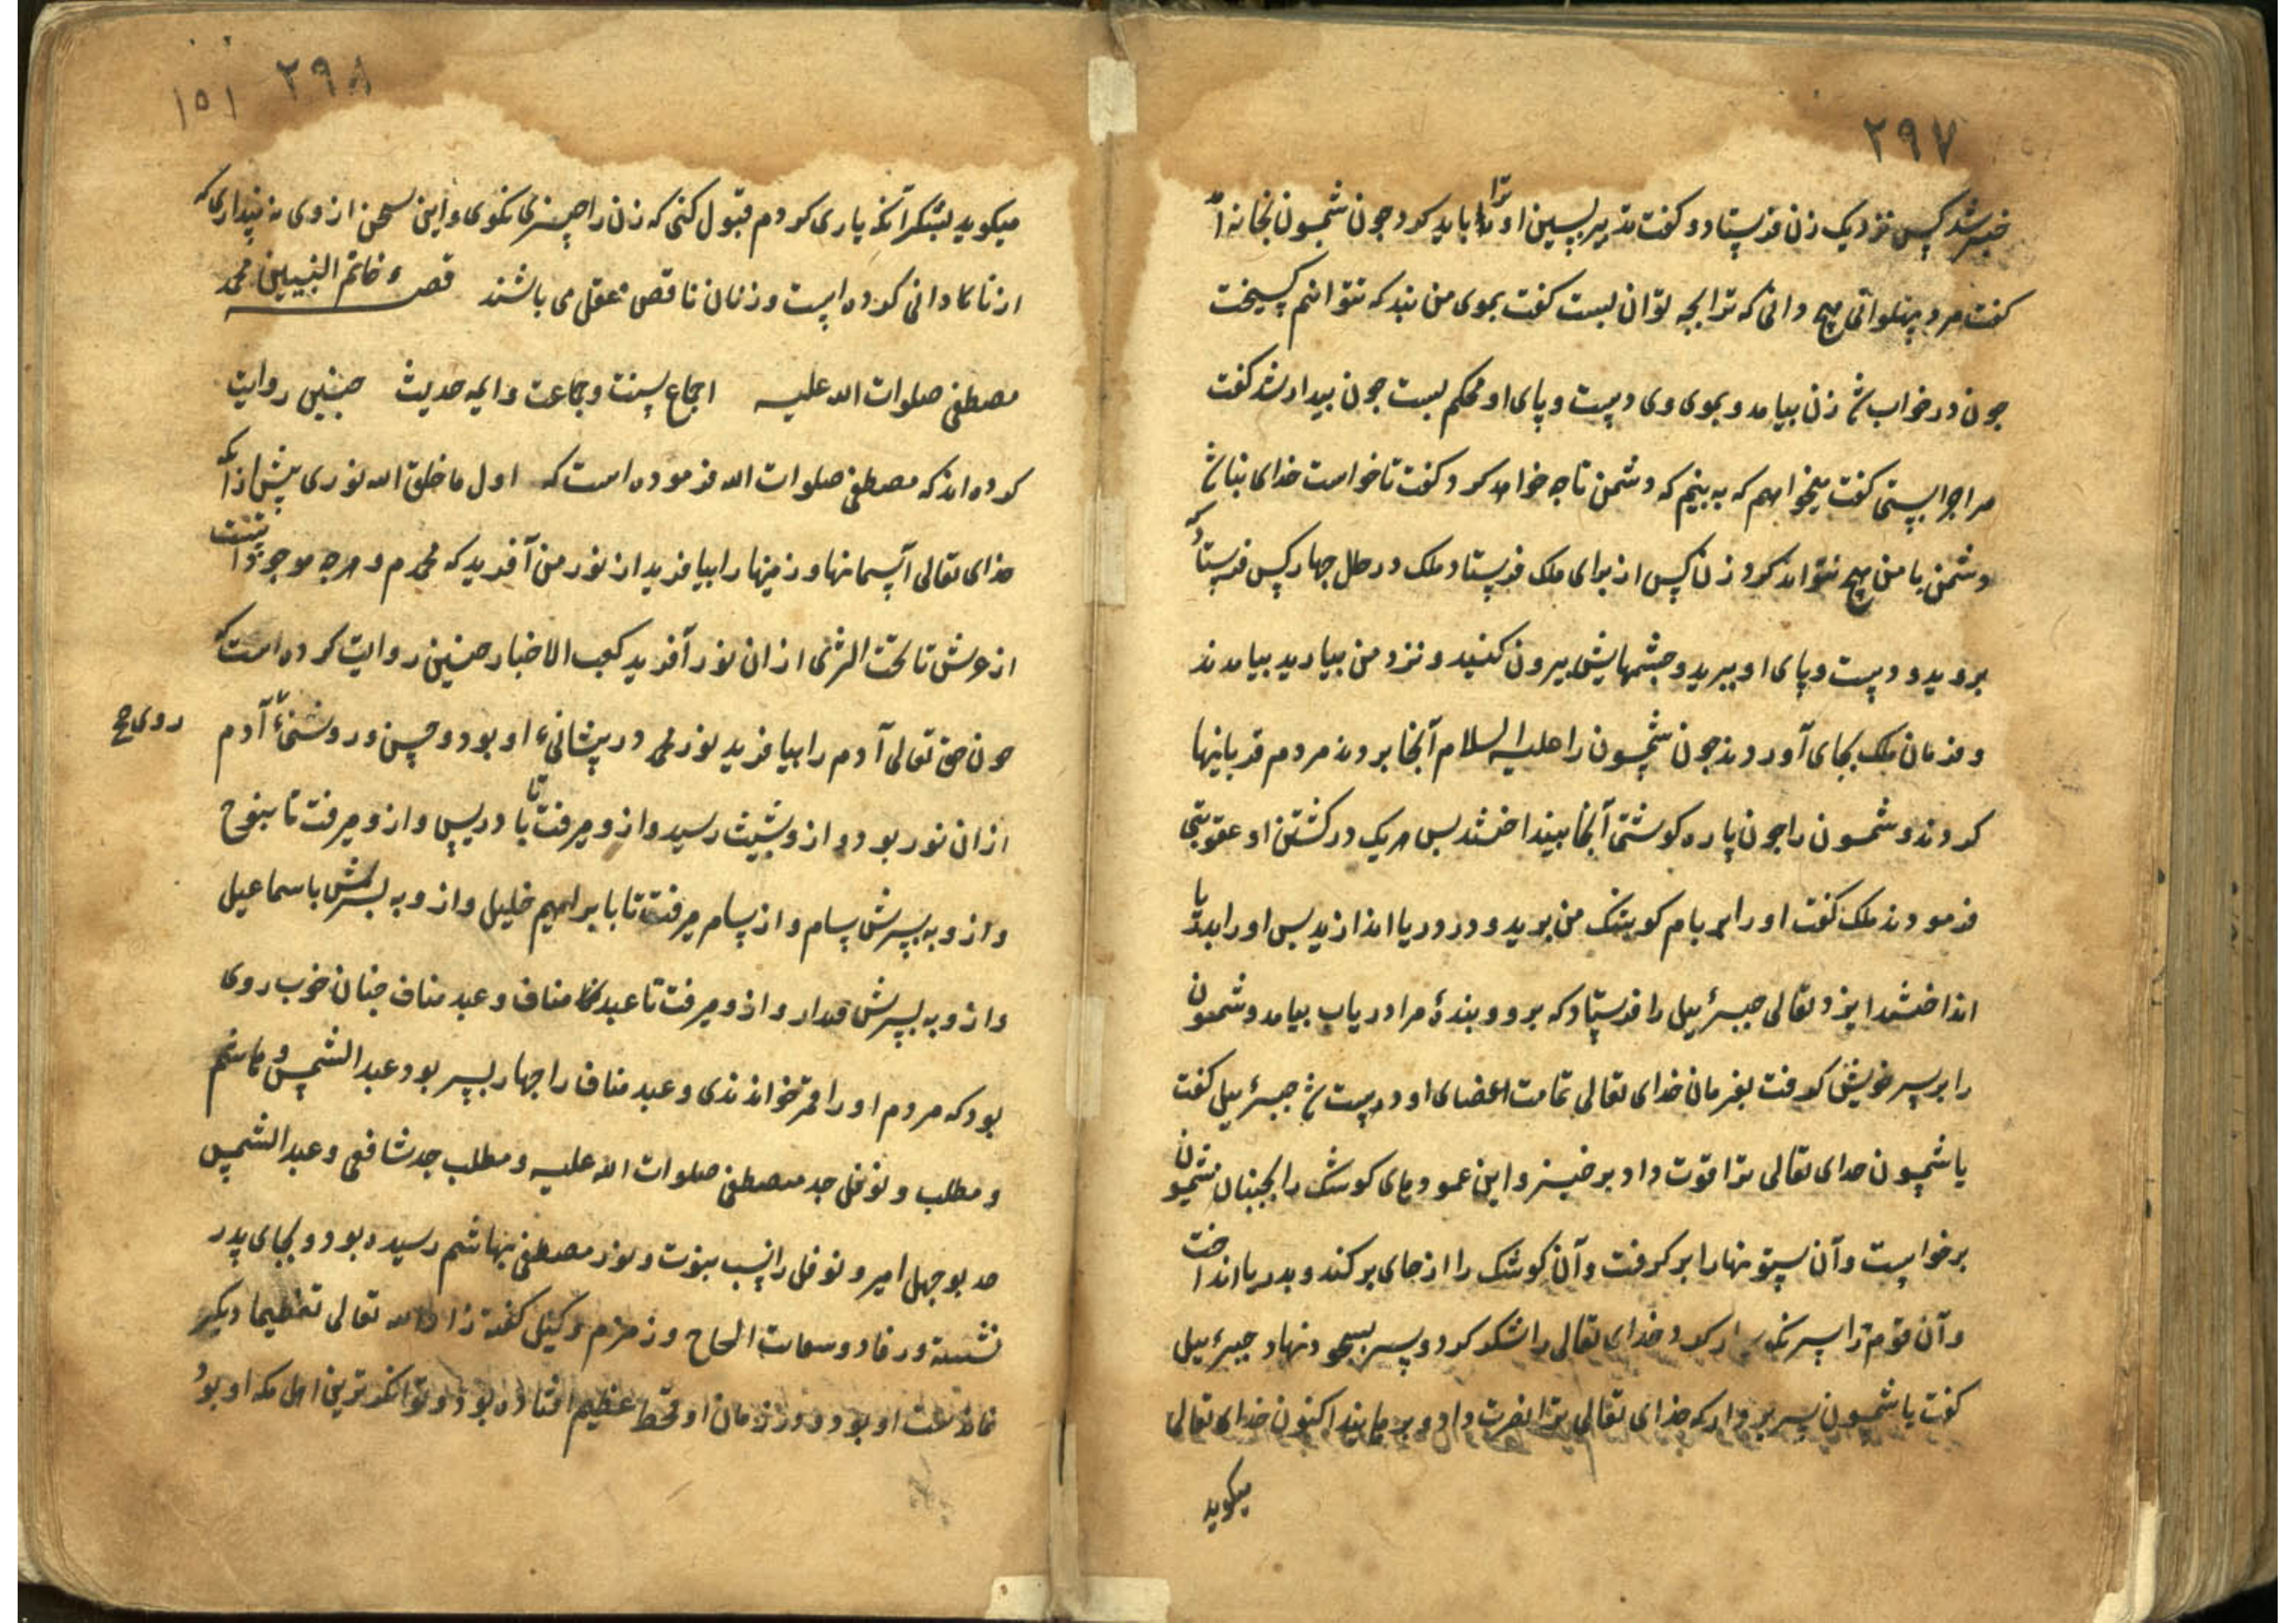 ۲۹۷
خبر شد کس نزدیک زن فرستاد و کفت تدبیر پسین او ترا باید کرد چون شمسون بخانه آمد
کفت مرد پهلوانی هیچ دانی که ترا بچه توان بست کفت بموی من بند که نتوانم کسیخت
چون در خواب شد زن بیامد و بموی وی دست و پای او محکم ببست چون بیدار شد کفت
مرا چرا بستی کفت میخواهم که به بینم که دشمن تا چه خواهد کرد کفت تا خواست خدای نباشد
دشمن با من هیچ نتواند کرد زن کس از برای ملک فرستاد ملک در حال چهار کس فرستاد که
بروید و دست و پای او ببرید و چشمهایش بیرون کنید و نزد من بیارید بیامدند
و فرمان ملک بجای آوردند چون شمسون را علیه السلام آنجا بردند مردم قربانیها
کردند و شمسون را چون پاره کوشتی آنجا بینداختند پس هر یک در کشتن او عقوبتی
فرمودند ملک کفت او را بر بام کوشک من برید و در دریا اندازید پس او را بدریا
انداختند ایزد تعالی جبرئیل را فرستاد که برو و بندهٔ مرا دریاب بیامد و شمسون
را بر پر خویش کرفت بفرمان خدای تعالی تمامت اعضای او درست شد جبرئیل کفت
یا شمسون خدای تعالی ترا قوت داد برخیز و این عمودهای کوشک را بجنبان شمسون
برخواست و آن ستونها را بر کرفت و آن کوشک را از جای برکند و بدریا انداخت
و آن قوم را سرنکسار کرد و خدای تعالی را شکر کرد و سر بسجود نهاد جبرئیل
کفت یا شمسون سر بردار که خدای تعالی ترا نصرت داد و برهانید اکنون خدای تعالی
میکوید
۲۹۸ ۱۵۱
میکوید بشکر آنکه یاری کردم قبول کنی که زن را چیزی نکوی و این سخن از وی نه پنداری که
از نادانی کرده است و زنان ناقص عقل می باشند قصهٔ خاتم النبیین محمد
مصطفی صلوات الله علیه اجماع سنت و جماعت و ایمه حدیث چنین روایت
کرده اند که مصطفی صلوات الله فرموده است که اول ما خلق الله نوری پیش از آنکه
خدای تعالی آسمانها و زمینها را بیافرید از نور من آفرید که محمدم و هرچه موجودات است
از عرش تا تحت الثری از ان نور آفرید کعب الاخبار چنین روایت کرده است که
چون حق تعالی آدم را بیافرید نور محمد در پیشانیء او بود و حسن و روشنیء آدم
روی صح
از ان نور بود و از و بشیث رسید و از و میرفت تا با دریس و از و میرفت تا بنوح
و از و به پسرش سام و از سام میرفت تا بابراهیم خلیل و از و به پسرش باسماعیل
و از و به پسرش قیدار و از و میرفت تا عبد مناف و عبد مناف چنان خوب روی
بود که مردم او را قمر خواندندی و عبد مناف را چهار پسر بود عبد الشمس و هاشم
و مطلب و نوفل جد مصطفی صلوات الله علیه و مطلب جد شافعی و عبد الشمس
جد بوجهل امیر و نوفل را نسب نبوت و نور مصطفی بهاشم رسیده بود و بجای پدر
نشسته و رفاد و سقایت الحاج و زمزم کفته زاده الله تعالی تعظیما دیکر
او بود و در زمان او قحط عظیم افتاده بود و توانکر ترین اهل مکه او بود